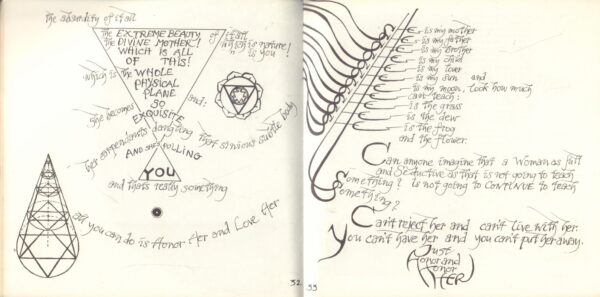 the absurdity of it all
the EXTREME BEAUTY of it all
the DIVINE MOTHER! which is nature!
WHICH IS ALL is you!
OF THIS!
which is the WHOLE
PHYSICAL
PLANE
SO
EXQUISITE
She becomes
and:
her appendants dangling
that sinious subtle body
AND and PULLING
YOU
and that's really something
all you can do is Honor Her and Love Her
32
is my mother
is my father
is my brother
is my child
is my lover
is my sun and
is my moon, look how much
can teach:
is the grass
is the dew
is the frog
and the flower.
Can anyone imagine that a Woman as full
and Seductive as that is not going to teach
Something? is not going to CONTINUE to teach
Something?
Can't reject her and can't live with her.
You can't have her and you can't put her away.
Just
Honor and
Honor
(HER)
33